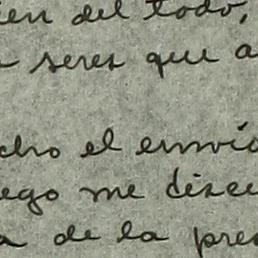 ien del todo,
seres que a
cho el envío
ego me dise
a de la pres